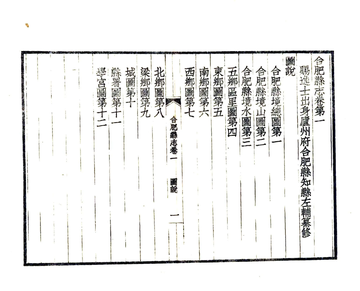 合肥縣志卷第一
賜進士出身廬州府合肥縣知縣左輔纂修
圖說
合肥縣境總圖第一
合肥縣境山圖第二
合肥縣境水圖第三
五鄉區里圖第四
東鄉圖第五
南鄉圖第六
西鄉圖第七
合肥縣志卷一 圖說 一
北鄉圖第八
梁鄉圖第九
城圖第十
縣署圖第十一
學宮圖第十二